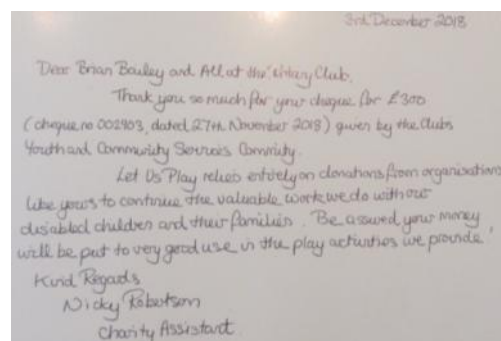 3rd December 2018
Dear Brian Bailey and All at the Rotary Club,
Thank you so much for your cheque for £300
(cheque no 002903, dated 27th November 2018) given by the Clubs
Youth and Community Services Commity.
Let Us Play relies entirely on donations from organisations
like yours to continue the valuable work we do with our
disabled children and their families. Be assured your money
will be put to very good use in the play activities we provide.
Kind Regards
Nicky Robertson
Charity Assistant